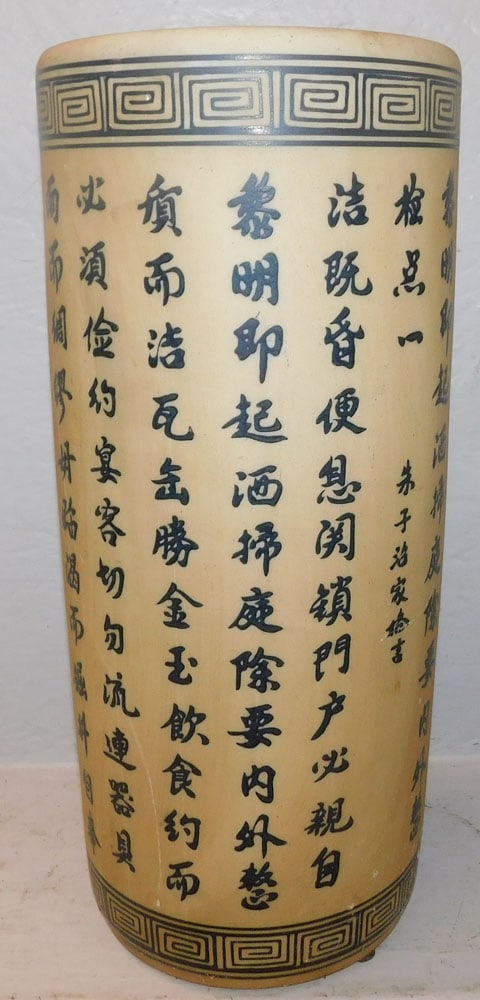 雨而綢繆毋臨渴而掘井自奉
必須俭約宴客切勿流連器具
質而洁瓦缶勝金玉飲食約而
黎明即起洒掃庭除要内外整
洁既昏便息関锁門户必親自
检点
朱子治家格言
黎明即起洒掃庭除要内外整